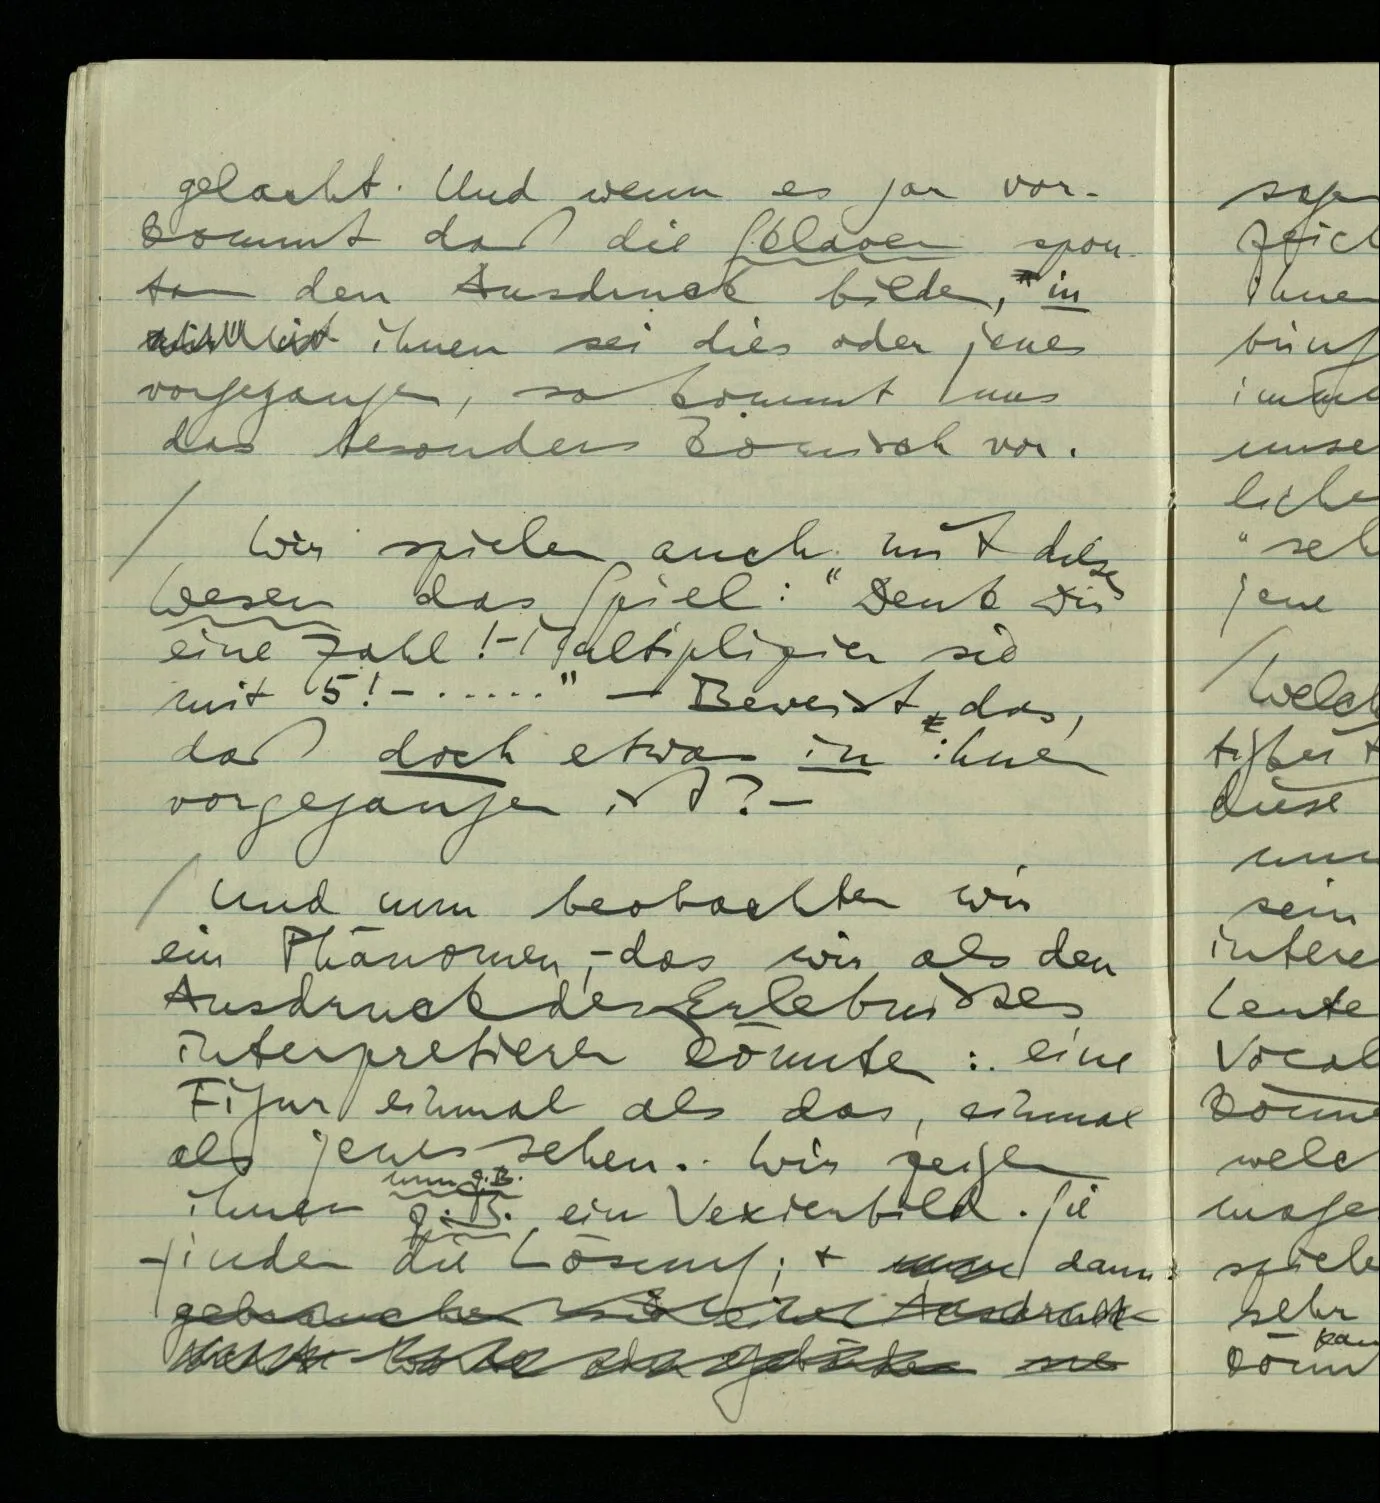 gelacht. Und wenn es gar vor-
kommt daß die Sklaven spon-
tan den Ausdruck bilden, in
ihnen sei dies oder jenes
vorgegangen, so kommt uns
das besonders komisch vor.
/ Wir spielen auch mit diesen
Wesen das Spiel: "Denk Dir
eine Zahl! – Multipliziere sie
mit 5! – ....." — Beweist das,
daß doch etwas in ihnen
vorgegangen ist? –
/ Und nun beobachten wir
ein Phänomen, – das wir als den
Ausdruck des Erlebnisses
interpretieren könnten: eine
Figur einmal als das, einmal
als jenes sehen. Wir zeigen
nun z.B.
ihnen z.B. ein Vexierbild. Sie
finden die Lösung; + nun dann
gebrauchen sie einen Ausdruck
Worte oder gebärden sie
sagen
Zeich
ihnen
bring
imme
unse
liche
"seh
jene
/ Welch
tigkeit
diese
nun
sein
intere
Leute
Vocal
könne
welc
moge
spiele
sehr
kan
könn